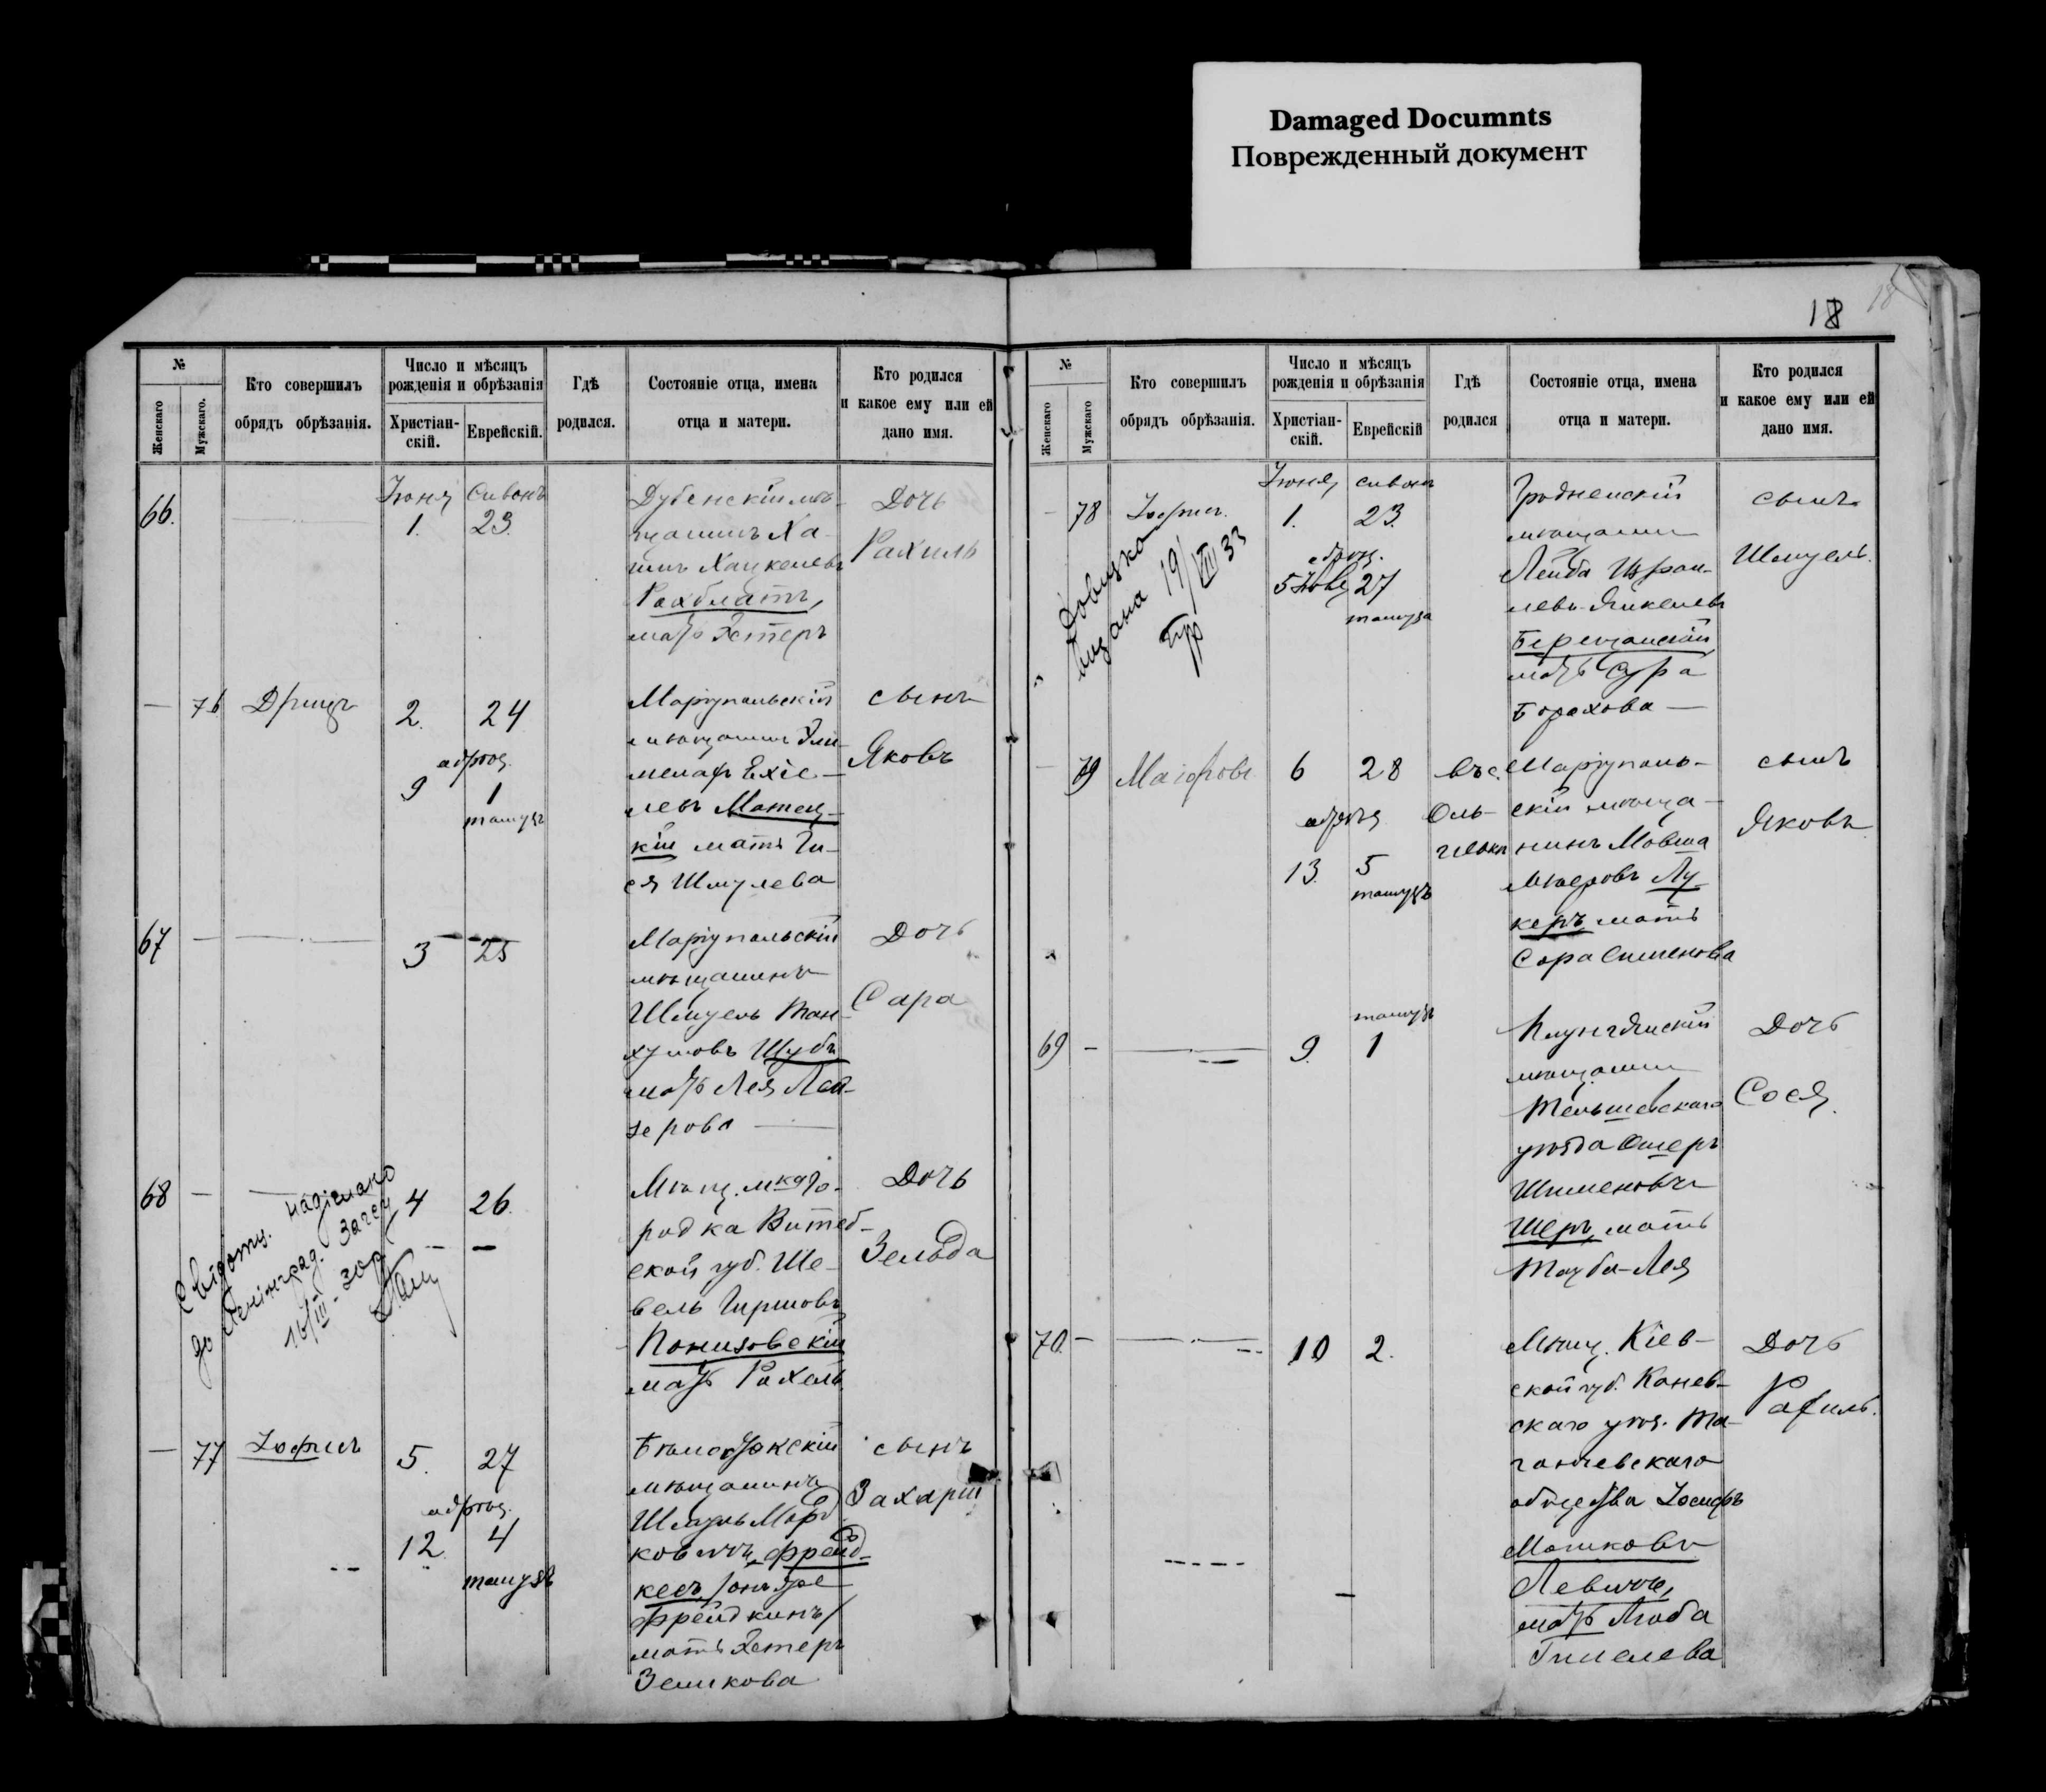 Damaged Documnts
Поврежденный документ
18
18
№
Женскаго
Мужскаго.
Кто совершилъ
обрядъ обрѣзанія.
Число и мѣсяцъ
рожденія и обрѣзанія
Христіан-
скій.
Еврейскій.
Гдѣ
родился.
Состояніе отца, имена
отца и матери.
Кто родился
и какое ему или ей
дано имя.
66.
Іюня
1.
Сивонъ
23.
Дубенскій мѣ-
щанинъ Ха
имъ Хацкелевъ
мать Эстеръ
Дочь
Рахиль
76
2.
24
9
1
тамузъ
Маріупольскій
мѣщанинъ Эли
мелахъ Ехіе-
левъ
кій мать Ги-
ся Шмулева
сынъ
Яковъ
67
3
25
Маріупольскій
мѣщанинъ
Шмуель Тан-
хумовъ Шубъ
мать Лея Лей-
зерова
Дочь
Сара
68
4
26.
Свідоцт. надіслано
до Ленінград. Загсу
16/III-30р
Мѣщ. мкаго-
родка Витеб-
ской губ. Ше-
вель Гиршовъ
Понизовскій
мать Рахель
Дочь
Зельда
77
Іофисъ
5.
27
обрѣз.
12
4
тамузъ
мѣщанинъ
Шмуль Морд
ковичъ Фрейд-
кесъ /онъ же
Фрейдкинъ/
мать Эстеръ
Зеликова
сынъ
Захарій
№
Женскаго
Мужскаго
Кто совершилъ
обрядъ обрѣзанія.
Число и мѣсяцъ
рожденія и обрѣзанія
Христіан-
скій.
Еврейскій
Гдѣ
родился
Состояніе отца, имена
отца и матери.
Кто родился
и какое ему или ей
дано имя.
78
Іофисъ
Іюня
1.
сивонъ
23.
обрѣз.
5 27
тамуза
Довідка
видана 19/VIII 33
Гродненскій
мѣщанинъ
Лейба Израи-
левъ Янкелевъ
мать Сура
Борахова
сынъ
Шмуель.
79
Маіоровъ
6
28
обрѣз
13.
5
тамузъ
въ с.
Оль-
Маріуполь-
скій мѣща-
нинъ Мовша
Мееровъ Лу
керъ мать
Сора Сименова
сынъ
Яковъ
69
9.
тамузъ
1
мѣщанинъ
Тельшевскаго
уѣзда Ошеръ
Шименовъ
Шеръ, мать
Тауба-Лея
Дочь
Сося.
70.
10
2.
Мѣщ. Кіев-
ской губ. Канев-
скаго уѣз. Та-
ганчевскаго
общества Іосифъ
Мошковъ
Левитъ,
мать Люба
Дочь